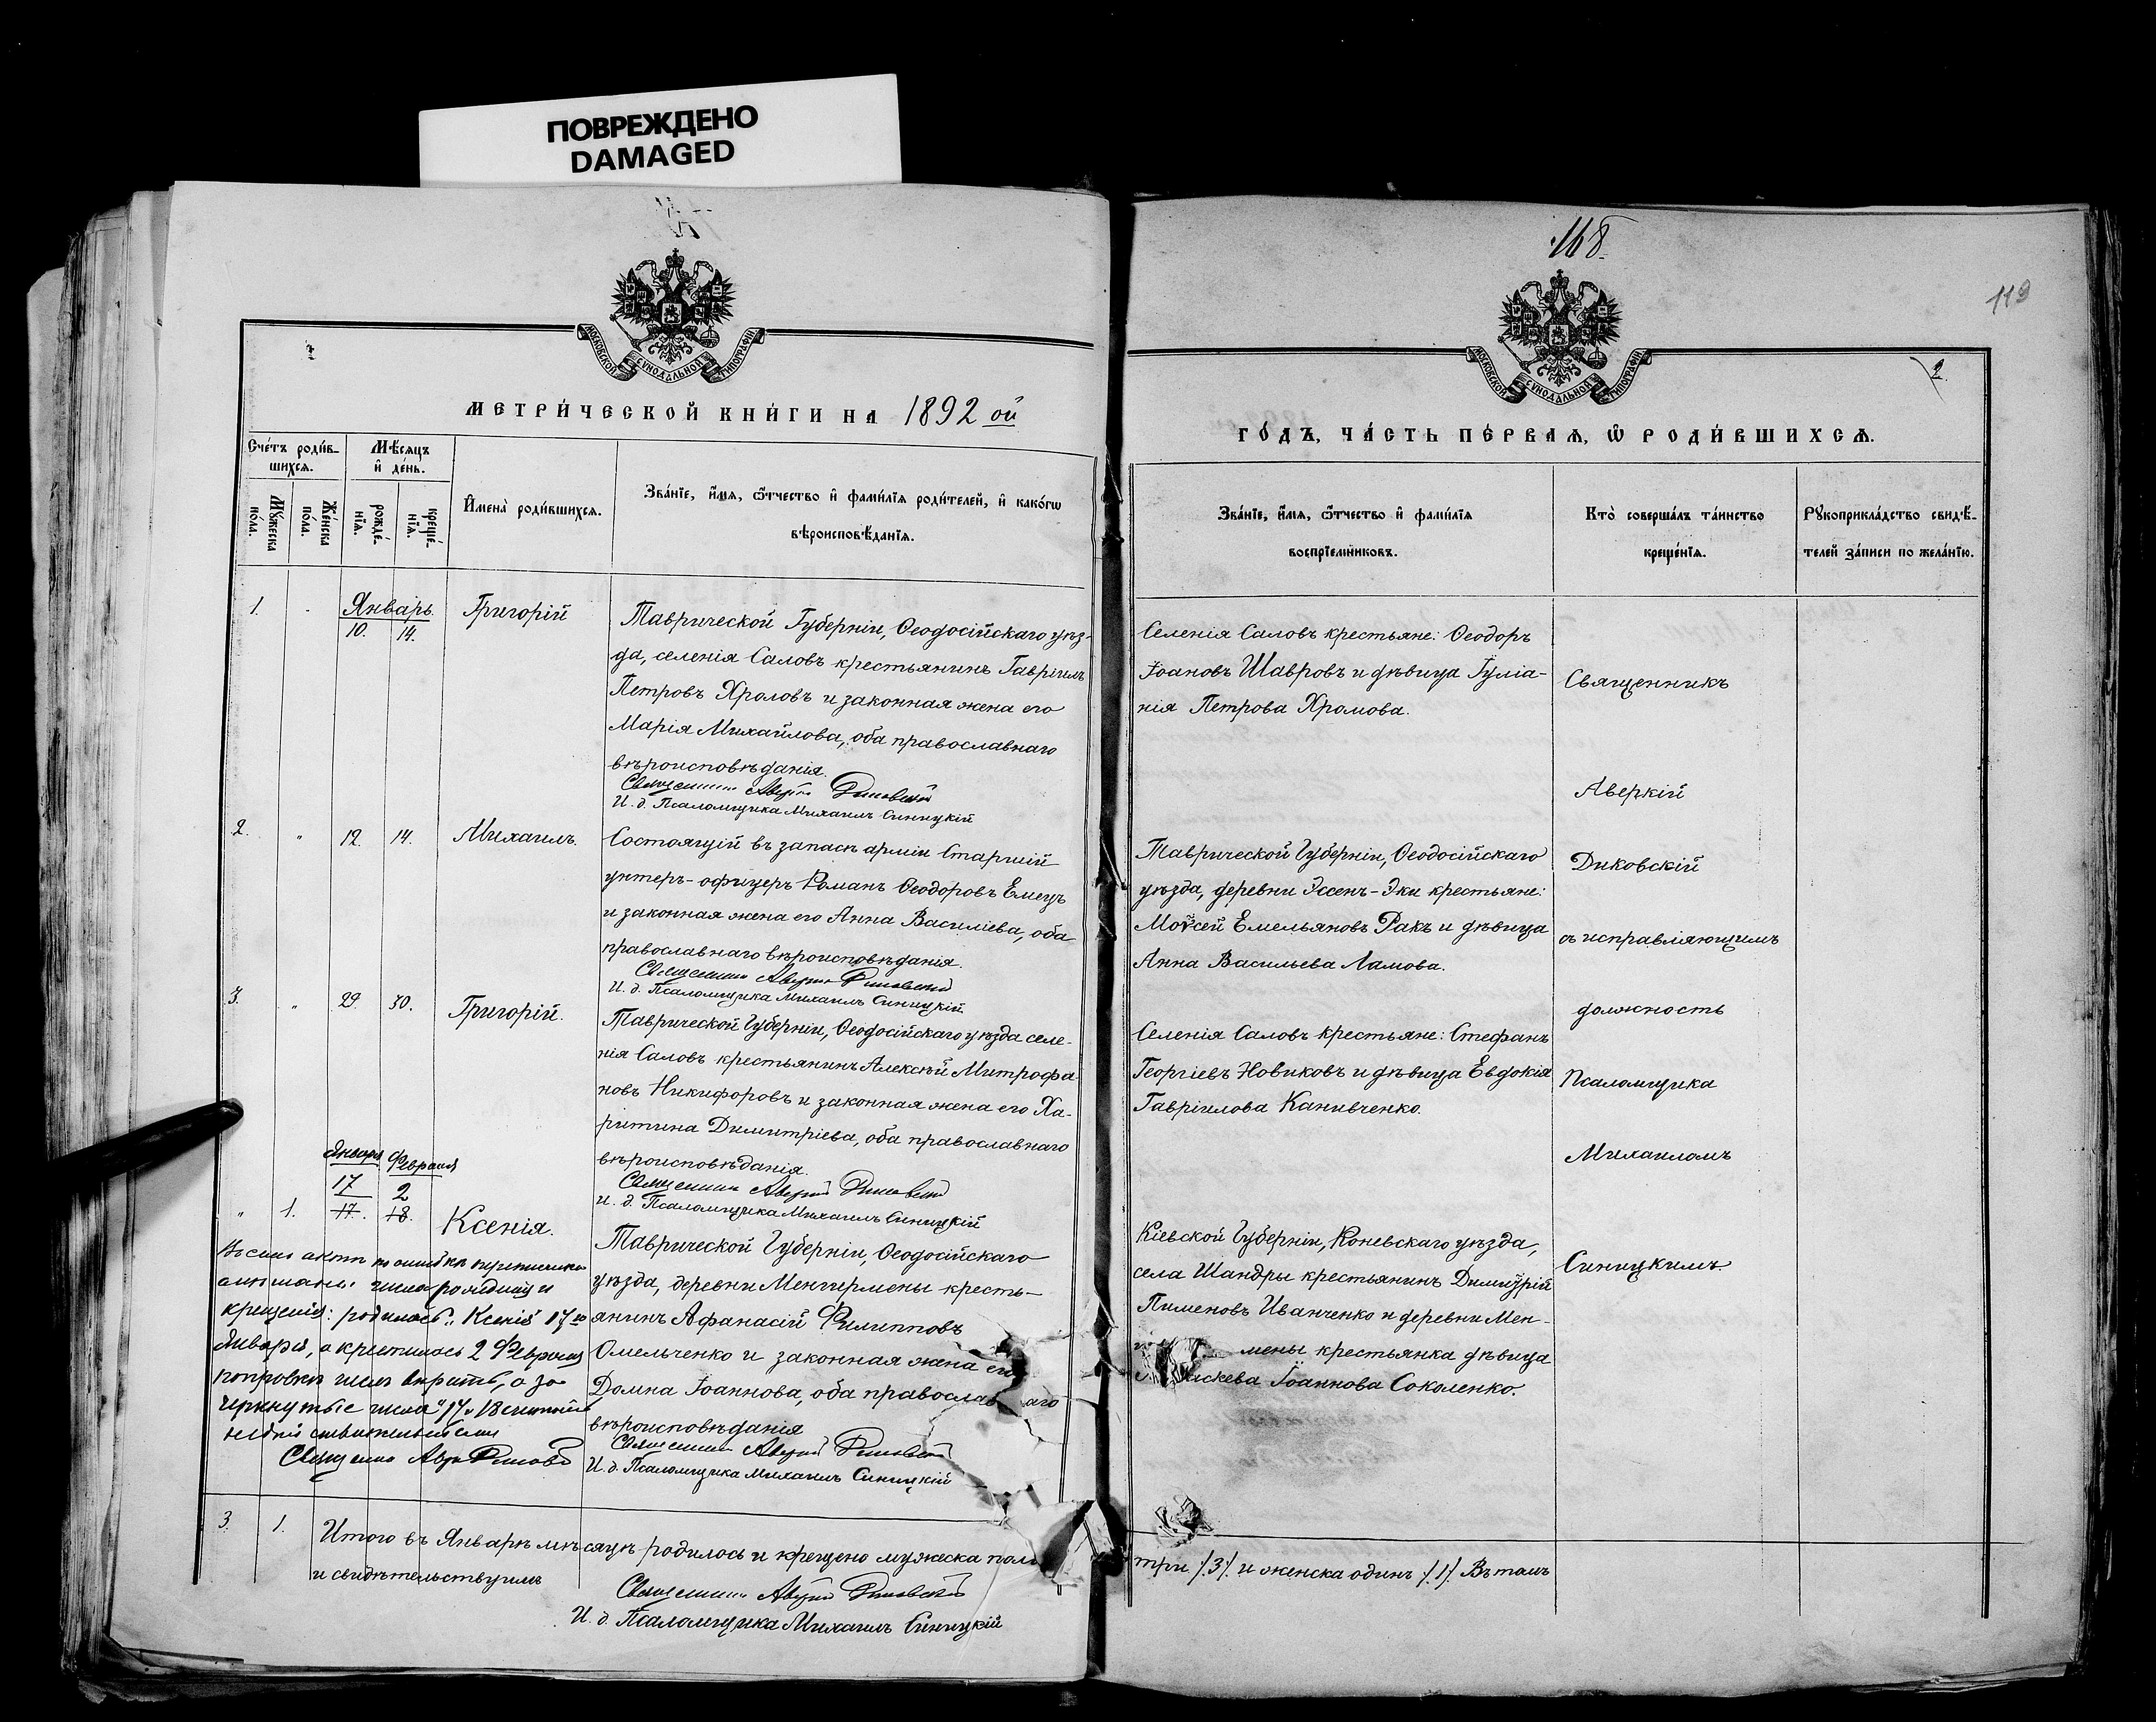 ПОВРЕЖДЕНО
DAMAGED
МОСКОВСКОЙ СѴНОДАЛЬНОЙ ТИПОГРАФІИ
МЕТРИ́ЧЕСКОЙ КНИ́ГИ НА 1892 ой
Сче́тъ роди́в-
шихся.
Мѣ́сяцъ
и҆ де́нь.
Мꙋ́жеска по́ла.
Же́нска по́ла.
рожде́-нїѧ.
креще́-нїѧ.
И҆мена̀ роди́вшихсѧ.
Зва́нїе, и҆́мѧ, ѻ҆́тчество и҆ фами́лїѧ роди́телей, и҆ како́гѡ
вѣроисповѣ́данїѧ.
1.
Январь.
10. 14.
Григорій
Таврической Губерніи, Ѳеодосійскаго уѣз-
да, селенія Саловъ крестьянинъ Гавріилъ
Петровъ Хроловъ и законная жена его
Марія Михайлова, оба православнаго
вѣроисповѣданія.
Священникъ Аверкій Диковскій
И. д. Псаломщика Михаилъ Синицкій
2. " 12. 14. Михаилъ.
Состоящій въ запасѣ арміи Старшій
унтеръ-офицеръ Романъ Ѳеодоровъ Емецъ
и законная жена его Анна Василіева, оба
православнаго вѣроисповѣданія.
Священникъ Аверкій Диковскій
И. д. Псаломщика Михаилъ Синицкій
3. " 29. 30. Григорій.
Таврической Губерніи, Ѳеодосійскаго уѣзда селе-
нія Саловъ крестьянинъ Алексѣй Митрофа-
новъ Никифоровъ и законная жена его Ха-
ритина Димитріева, оба православнаго
вѣроисповѣданія.
Священникъ Аверкій Диковскій
И. д. Псаломщика Михаилъ Синицкій
Января Февраля
17 2
" 1. 17. 18. Ксенія.
Таврической Губерніи, Ѳеодосійскаго
уѣзда, деревни Менгермены кресть-
янинъ Афанасій Филипповъ
Омельченко и законная жена его
Домна Іоаннова, оба православ аго
вѣроисповѣданія
Священникъ Аверкій Диковскій
И. д. Псаломщика Михаилъ Синицкій
Въ семъ актѣ по ошибкѣ
числа рожденія и
крещенія: родилась Ксенія 17го
Января, а крестилась 2 Февраля
поправки чиселъ вѣрить, а за-
черкнутые числа "17 и 18 считать
недѣйствительными
Священникъ Аверкій Диковскій
3. 1. Итого въ Январѣ мѣсяцѣ родилось и крещено мужеска пола
и свидѣтельствуемъ
Священникъ Аверкій Диковскій
И. д. Псаломщика Михаилъ Синицкій
168.
119
МОСКОВСКОЙ СѴНОДАЛЬНОЙ ТИПОГРАФІИ
2.
ГО́ДЪ, ЧА́СТЬ ПЕ́РВАѦ, Ѡ҆ РОДИ́ВШИХСѦ.
Зва́нїе, и҆́мѧ, ѻ҆́тчество и҆ фами́лїѧ
воспрїе́мниковъ.
Кто̀ соверша́лъ та́инство
креще́нїѧ.
Рꙋкоприкла́дство свидѣ́-
телей за́писи по жела́нїю.
Селенія Саловъ крестьяне: Ѳеодоръ
Іоановъ Шавровъ и дѣвица Іуліа-
нія Петрова Хромова.
Таврической Губерніи, Ѳеодосійскаго
уѣзда, деревни Эссенъ-Эки крестьяне:
Моѵсей Емельяновъ Ракъ и дѣвица
Анна Васильева Ламова.
Селенія Саловъ крестьяне: Стефанъ
Георгіевъ Новиковъ и дѣвица Евдокія
Гавріилова Канивченко.
Кіевской Губерніи, Коневскаго уѣзда,
села Шандры крестьянинъ Димитрій
Пименовъ Иванченко и деревни Мен-
мены крестьянка дѣвица
скева Іоаннова Соколенко.
Священникъ
Аверкій
Диковскій
съ исправляющимъ
должность
Псаломщика
Михаиломъ
Синицкимъ.
три /.3./ и женска одинъ /.1./. Въ томъ